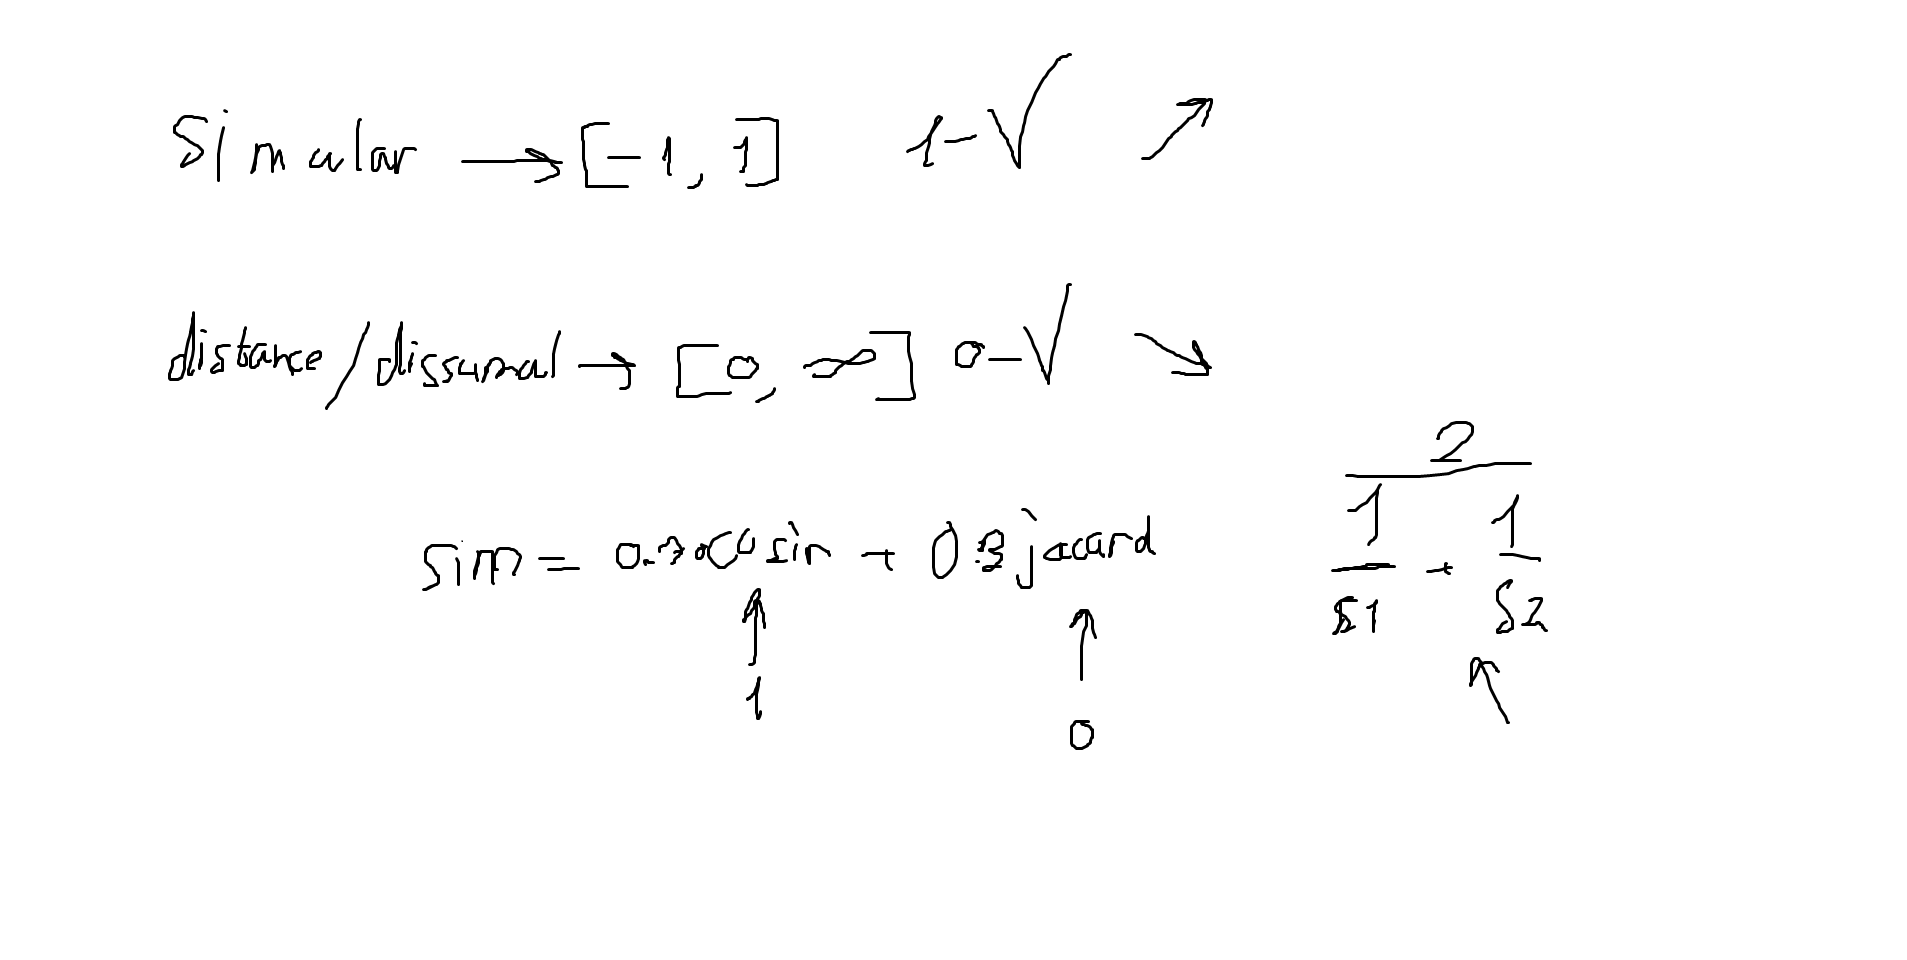 Simular → [-1, 1] 1-√ ↗
distance/dissumal → [0, ∞] 0-√ ↘
2
1 1
sim = 0.7 cosin + 0.3 jaccard +
S1 S2
↑ ↑ ↖
1
0